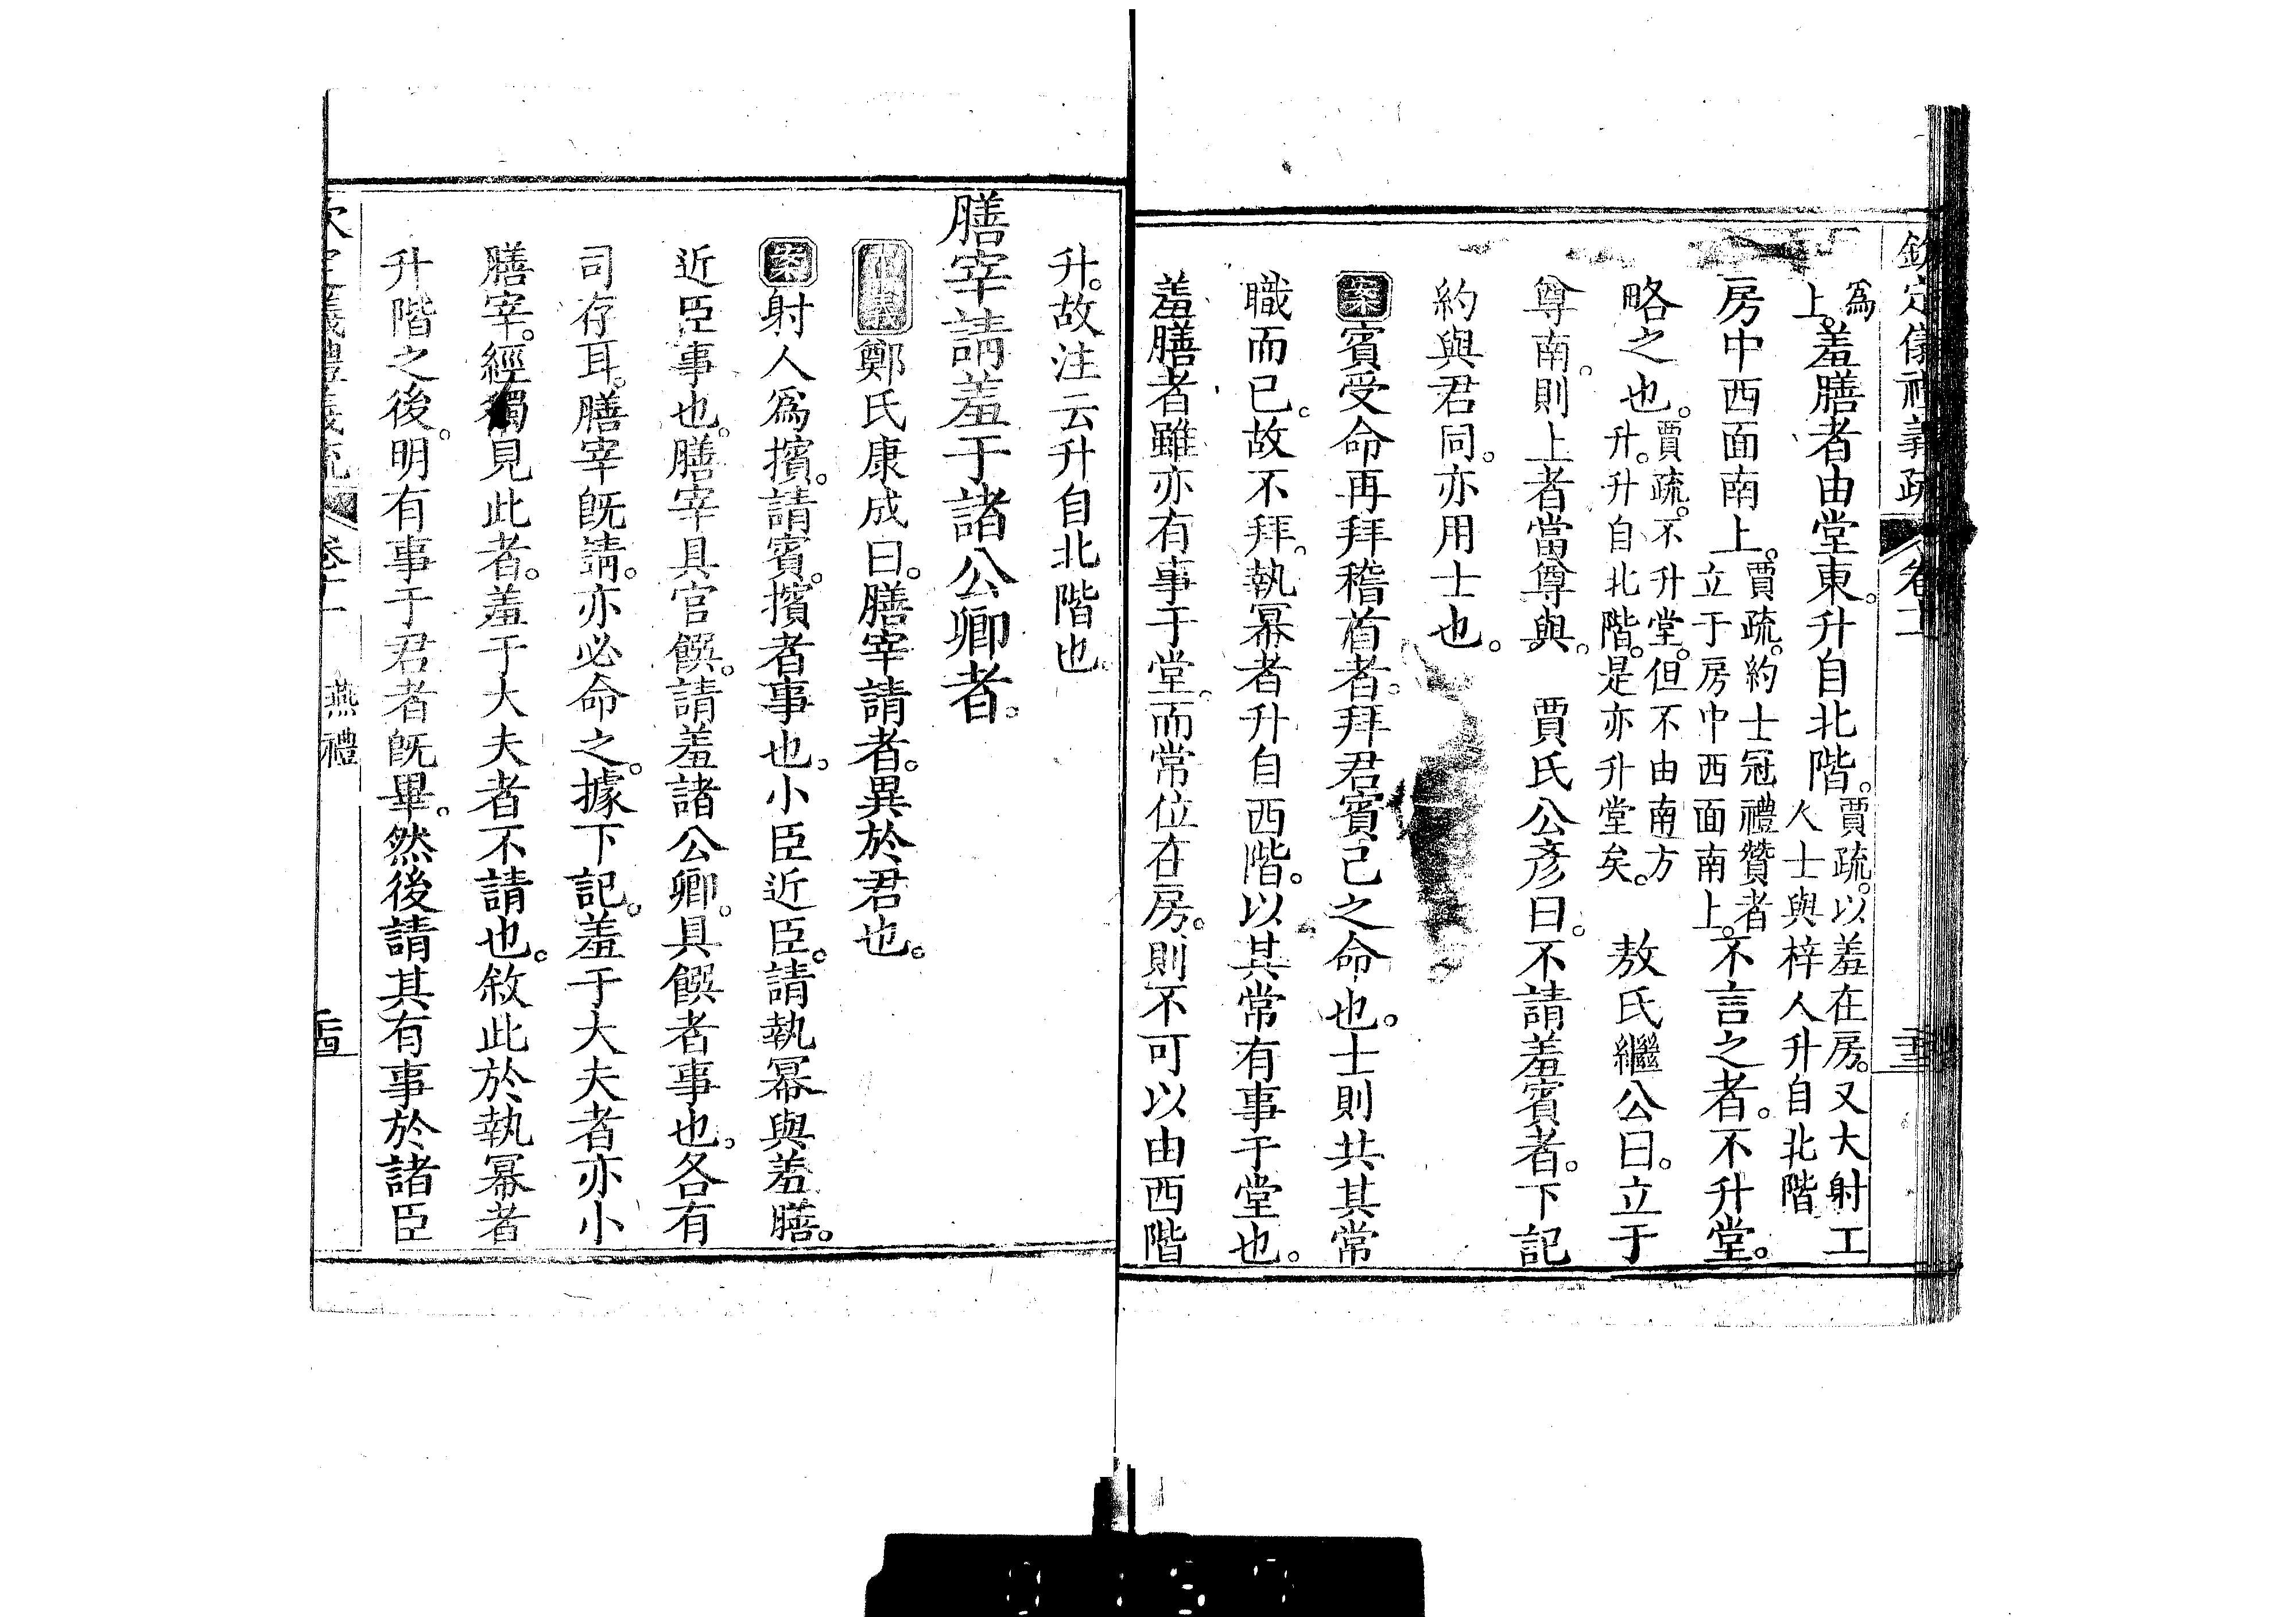 欽定儀禮義疏 卷十一
爲上。羞膳者由堂東。升自北階。賈疏。以羞在房。又大射工人士與梓人升自北階
房中西面南上。賈疏。約士冠禮贊者立于房中西面南上。不言之者。不升堂。
略之也。賈疏。不升堂。但不由南方升。升自北階。是亦升堂矣。 敖氏繼公曰。立于
尊南。則上者當尊與。 賈氏公彥曰。不請羞賓者。下記
約與君同。亦用士也。
案賓受命再拜稽首者。拜君賓己之命也。士則共其常
職而已。故不拜。執冪者升自西階。以其常有事于堂也。
羞膳者雖亦有事于堂。而常位在房。則不可以由西階
升。故注云升自北階也。
膳宰請羞于諸公卿者。
鄭氏康成曰。膳宰請者。異於君也。
案射人爲擯。請賓。擯者事也。小臣近臣。請執冪與羞膳。
近臣事也。膳宰具官饌。請羞諸公卿。具饌者事也。各有
司存耳。膳宰旣請。亦必命之。據下記。羞于大夫者亦小
膳宰。經獨見此者。羞于大夫者不請也。敘此於執冪者
升階之後。明有事于君者旣畢。然後請其有事於諸臣
燕禮